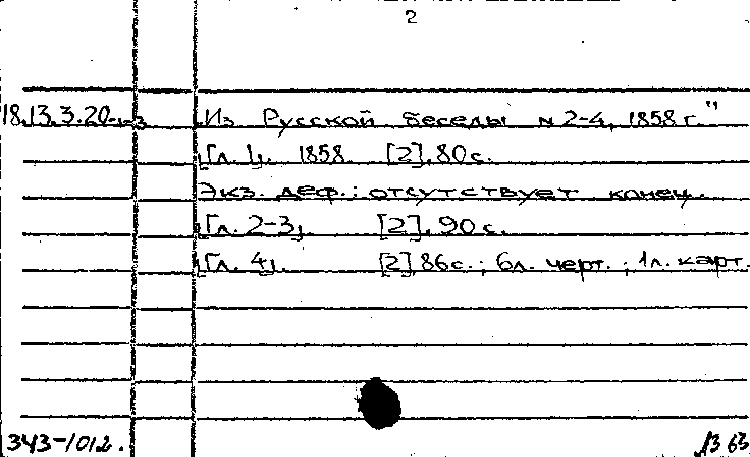 2
18.13.3.20 Из Русской беседы N 2-4, 1858 г."
[Гл. 1]. 1858. [2], 80 с.
Экз. деф.: отсутствует конец.
[Гл. 2-3]. [2], 90 с.
[Гл. 4]. [2], 86 с.; 6 л. черт.; 1 л. карт.
343-1012. 63